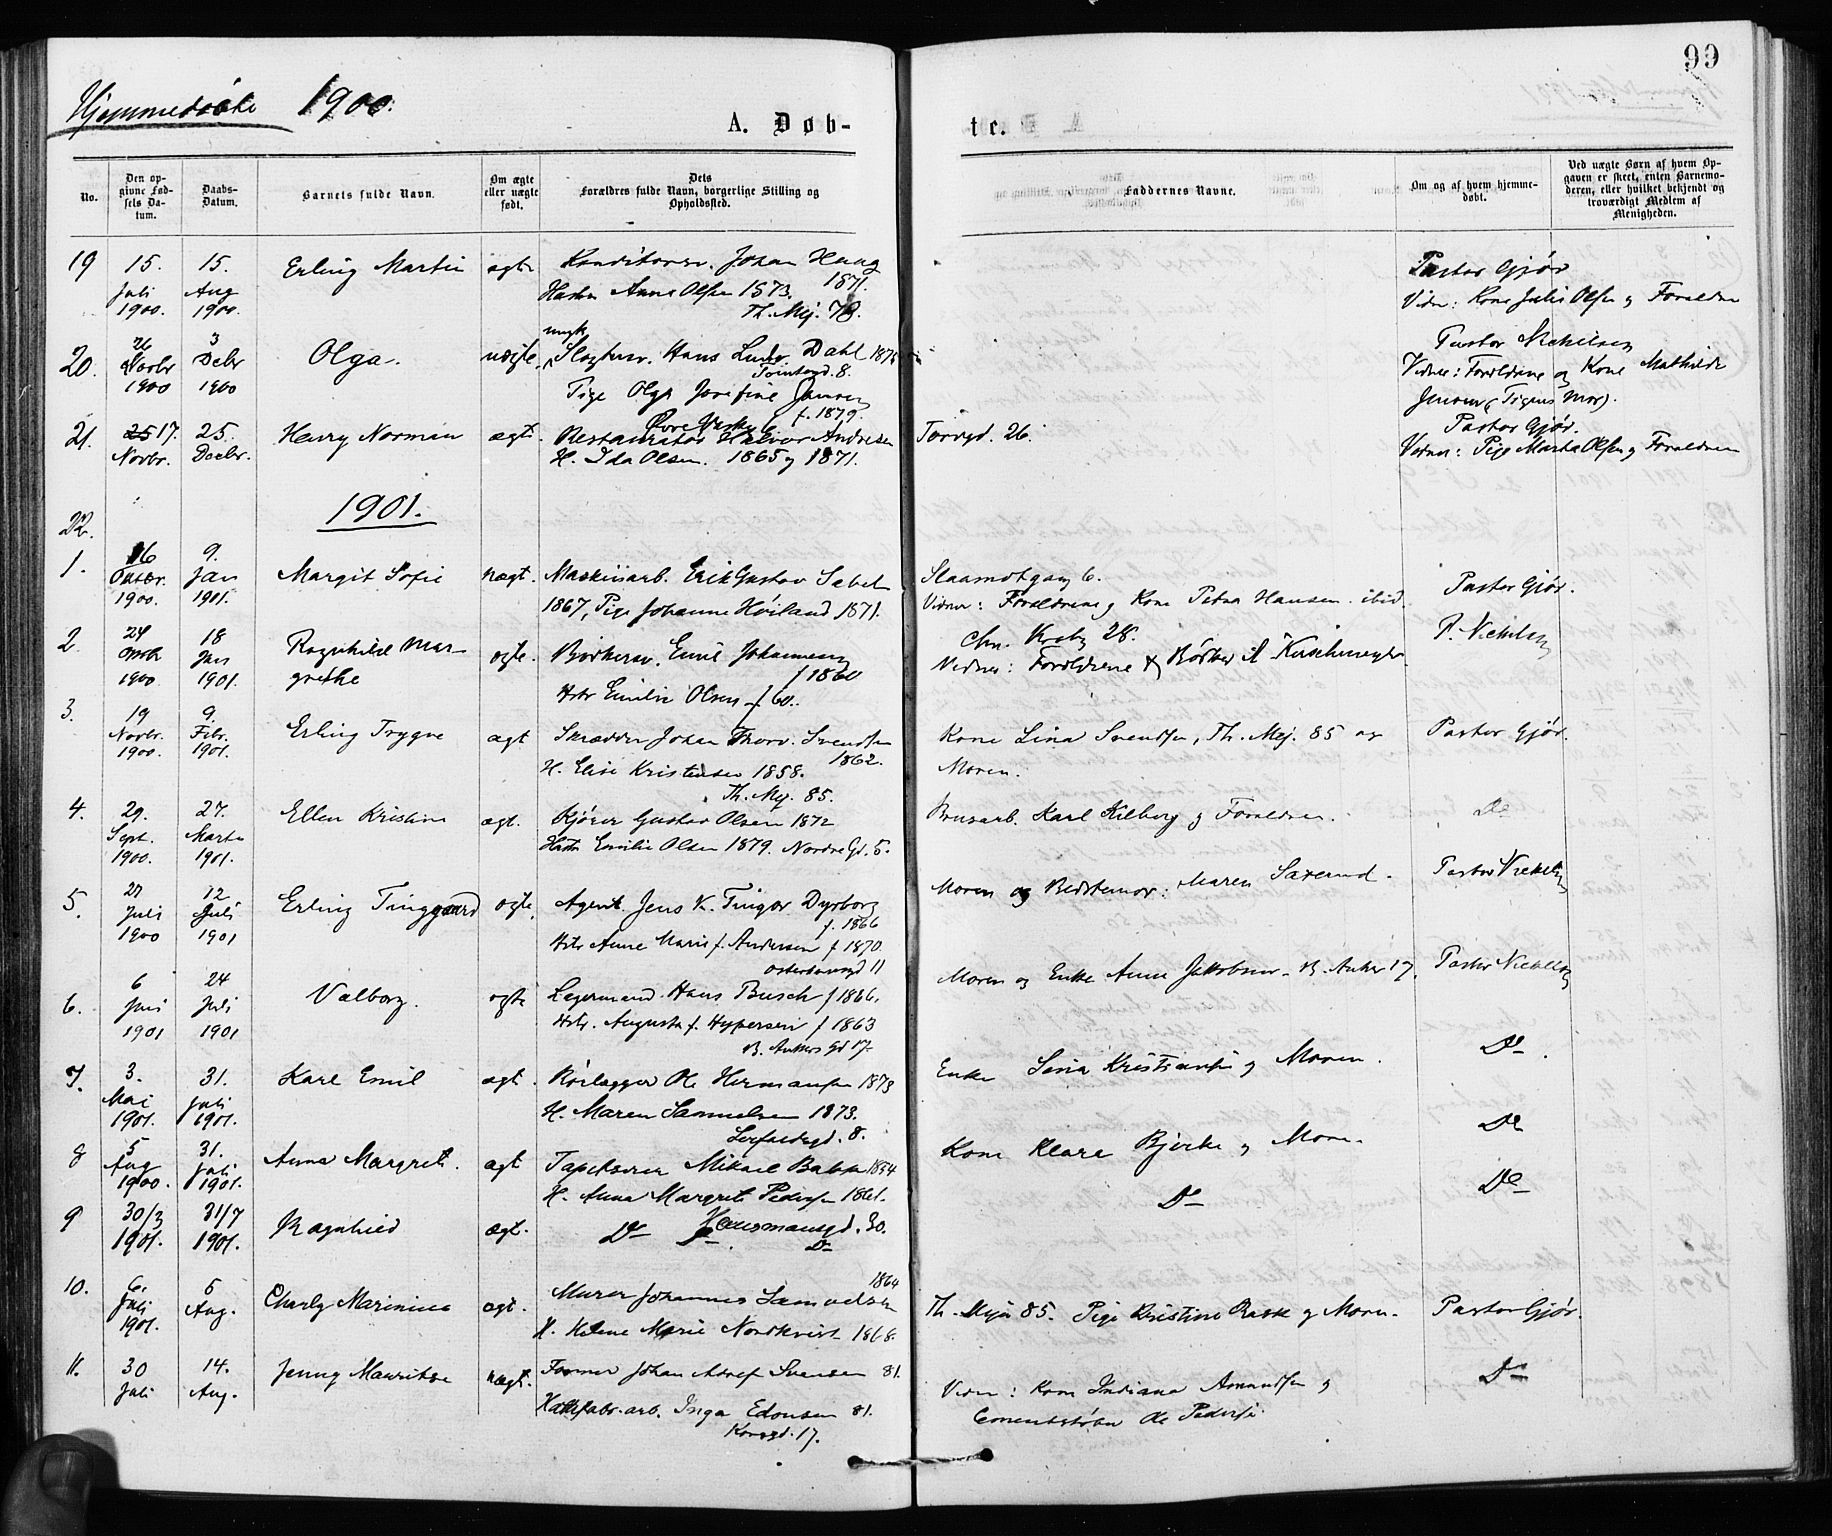 99
Hjemmedøbte 1900.
A. Døb-
te.
No.
Den op-
givne Fød-
sels Da-
tum.
Daabs-
Datum.
Barnets fulde Navn.
Om ægte
eller uægte
født.
Dets
Forældres fulde Navn, borgerlige Stilling og
Opholdssted.
Faddernes Navne.
Om og af hvem hjemme-
døbt.
Ved uægte Børn af hvem Op-
gaven er skeet, enten Barnemo-
deren, eller hvilket bekjendt og
troværdigt Medlem af
Menigheden.
19 15. Juli 1900. 15. Aug 1900. Erling Martin ægte Konditorsv. Johan Haag 1871.
Hustru Anna Olsen 1873.
Th. Mej. 78.
Pastor Gjør
Vidn: Kone Julie Olsen og Forældre
20. 26 Novbr 1900 3 Decbr 1900 Olga. uægte. Slagtersv. Hans Ludv. Dahl
Tomtegd. 8.
Pige Olga Josefine Jansen
f. 1879.
Pastor Nickelsen
Vidner: Forældrene og Kone Mathilde
Jensen (Pigens Mor).
21. 17. Novbr. 25. Decbr. Henry Norman ægte. Restauratør Halvor Andresen
H. Ida Olsen. 1865 og 1871.
Torvgd. 26.
Pastor Gjør.
Vidner: Pige Marta Olsen og Forældrene
22.
1901.
1. 16 1900. 9. Jan 1901. Margit Sofie uægt. Maskinarb. Erik Gustav
1867, Pige Johanne Høiland 1871.
6.
Vidner: Forældrene og Kone Petra Hansen. ibid.
Pastor Gjør.
2 24 1900 18 Jan 1901. Ragnhild Mar-
grethe
ægte. Bødkersv. Emil Johannesen
f 1860
Hstr Emilie Olsen f 60.
Chr. Krohg 28.
Vidner: Forældrene & Bødker
P. Nickelsen
3. 19 Novbr. 1900. 9. Febr. 1901. Erling Trygve ægt Skrædder Johan Thorv. Svendsen
1862.
H. Elise Kristensen 1858.
Th. Mej. 85.
Kone Lina Svendsen, Th. Mej. 85 og
Moren.
Pastor Gjør.
4. 29. Sept. 1900. 27. Marts 1901. Ellen Kristine ægt. Kjører Gustav Olsen 1872
Hustr Emilie Olsen 1879. Nordre Gd. 5.
Brusarb. Karl Kilberg og Forældrene.
Do
5. 27 Juli 1900 12 Juli 1901 Erling Tinggaard ægte. Agent. Jens K. Tingor Dyrborg
f. 1866
Hstr Anne Marie f. Andersen f 1870.
11
Moren og Bedstemor: Maren Saxerud.
Pastor Nickelsen
6. 6 Juni 1901 24 Juli 1901 Valborg. ægte Lagermand. Hans Busch f 1866.
Hstr. Augusta f. f 1863
B. Ankers Gd 17.
Moren og Enke Anne Jakobsen. B. Anker 17.
Pastor Nickelsen
7. 3. Mai 1901. 31. Juli 1901. Karl Emil ægt. Rørlægger Ole Hermansen 1873
H. Maren Samuelsen 1873.
8.
Enke Lina Kristiansen og Moren.
Do.
8 5 Aug 1900. 31. Juli 1901. Anna Margrete. ægt Tapetserer Mikael 1854
H. Anna Margrete Pedersen 1861.
Kone Klara Bjerke og Moren.
Do
9 30/3 1901. 31/7 1901. Ragnhild ægt. Do Do
Hausmansgd. 30.
Do
Do
Do
10. 6. Juli 1901. 5 Aug. Charly Marinius ægt. Murer Johannes Samuelsen
1864
H. Helene Marie Nordkvist 1868.
Th. Mejer 85. Pige Kristine Rask og Moren.
Pastor Gjør.
11. 30 Juli 14. Aug. Jenny Mauritse uægt. Former Johan Adolf Svensen 81.
Inga Edonsen 81.
Korsgd. 17.
Vidner: Kone Indiana Amundsen og
Cementstøber Ole Pedersen
Do